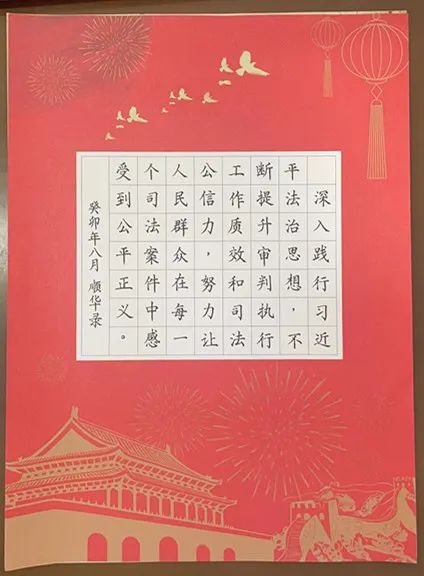 深入践行习近
平法治思想，不
断提升审判执行
工作质效和司法
公信力，努力让
人民群众在每一
个司法案件中感
受到公平正义。
癸卯年八月 顺华录